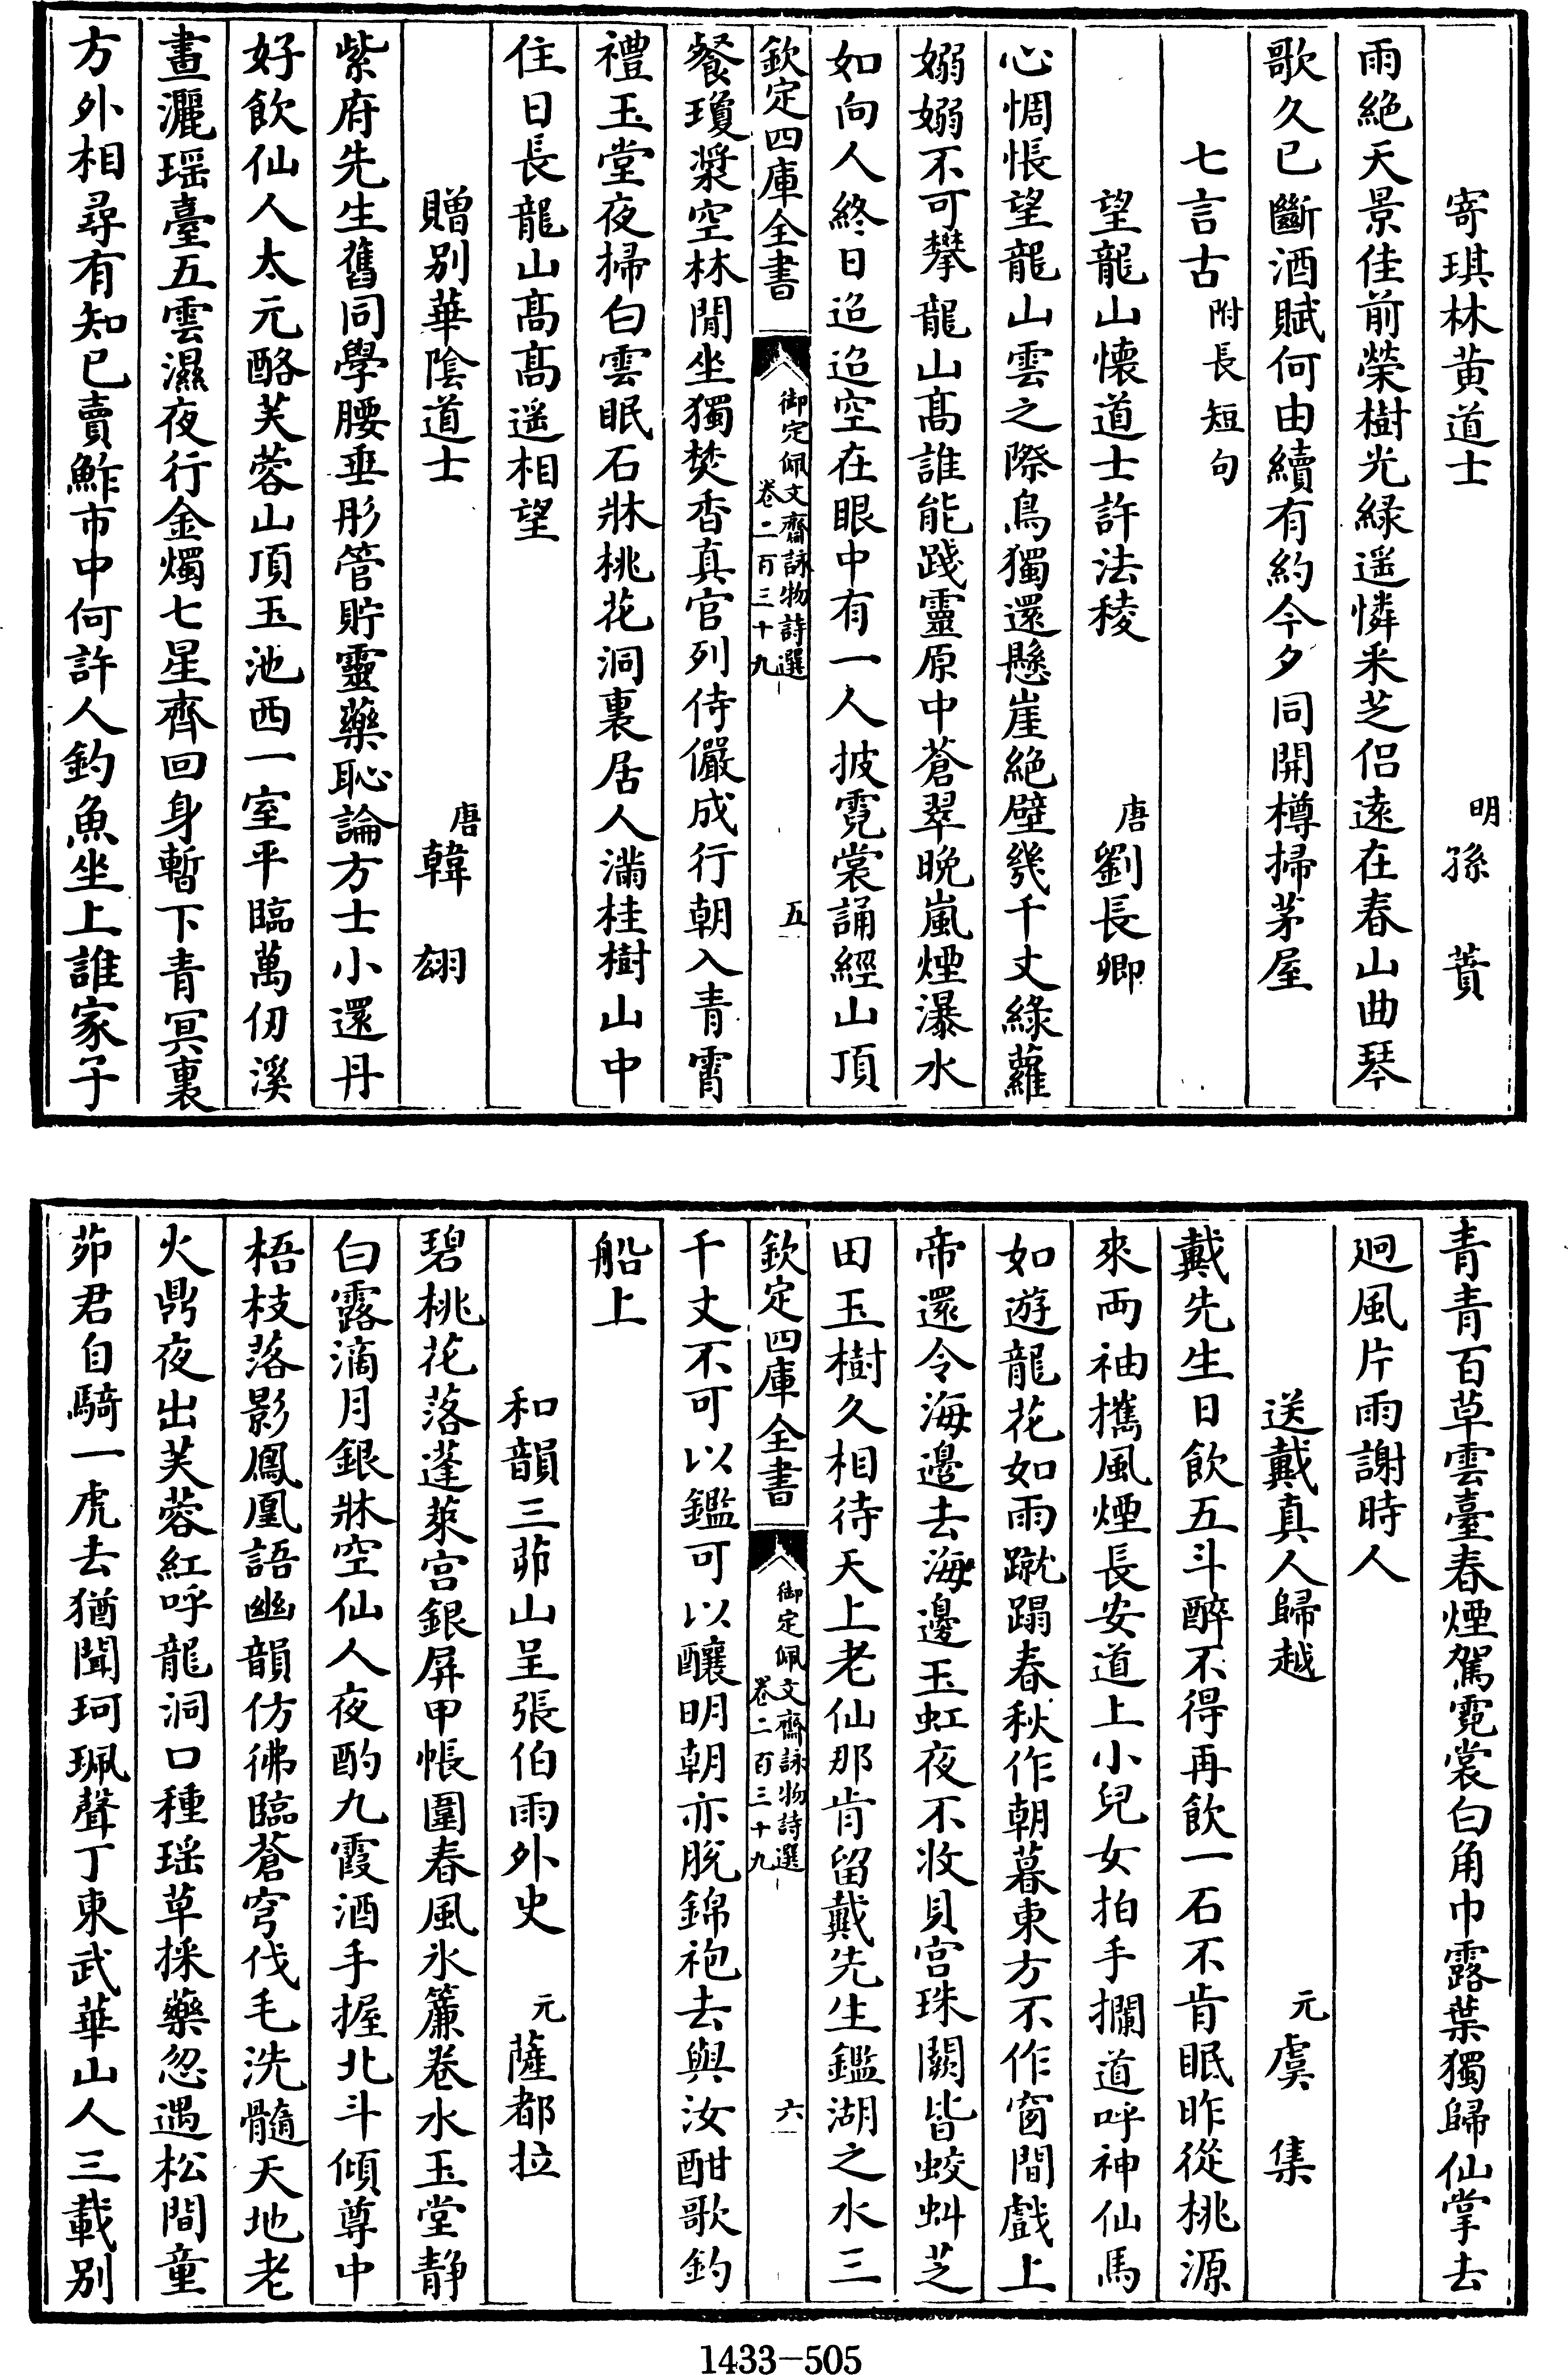 寄琪林黄道士　　明孫　蕡
雨絶天景佳前榮樹光緑遥憐采芝侣逺在春山曲琴
歌久已斷酒賦何由續有約今夕同開樽掃茅屋
七言古附長短句
望龍山懐道士許法稜　　唐劉長卿
心惆悵望龍山雲之際鳥獨還懸崖絶壁幾千丈緑蘿
嫋嫋不可攀龍山髙誰能踐靈原中蒼翠晩嵐煙瀑水
如向人終日迢迢空在眼中有一人披霓裳誦經山頂
欽定四庫全書　御定佩文齋詠物詩選卷二百三十九　五
餐瓊漿空林閒坐獨焚香真官列侍儼成行朝入青霄
禮玉堂夜掃白雲眠石牀桃花洞裏居人滿桂樹山中
住日長龍山髙髙遥相望
贈别華陰道士　　唐韓　翃
紫府先生舊同學腰垂彤管貯靈藥恥論方士小還丹
好飲仙人太元酪芙蓉山頂玉池西一室平臨萬仞溪
晝灑瑶臺五雲濕夜行金燭七星齊回身暫下青冥裏
方外相尋有知己賣鮓市中何許人釣魚坐上誰家子
青青百草雲臺春煙駕霓裳白角巾露葉獨歸仙掌去
迴風片雨謝時人
送戴真人歸越　　元虞　集
戴先生日飲五斗醉不得再飲一石不肯眠昨從桃源
來兩袖攜風煙長安道上小兒女拍手攔道呼神仙馬
如遊龍花如雨蹴蹋春秋作朝暮東方不作窗間戲上
帝還令海邊去海邊玉虹夜不收貝宫珠闕皆蛟虯芝
田玉樹久相待天上老仙那肯留戴先生鑑湖之水三
欽定四庫全書　御定佩文齋詠物詩選卷二百三十九　六
千丈不可以鑑可以釀明朝亦脱錦袍去與汝酣歌釣
船上
和韻三茆山呈張伯雨外史　　元薩都拉
碧桃花落蓬萊宫銀屏甲帳圍春風氷簾巻水玉堂静
白露滴月銀牀空仙人夜酌九霞酒手握北斗傾尊中
梧枝落影鳳凰語幽韻仿彿臨蒼穹伐毛洗髓天地老
火鼎夜出芙蓉紅呼龍洞口種瑶草採藥忽遇松間童
茆君自騎一虎去猶聞珂珮聲丁東武華山人三載别
1433-505